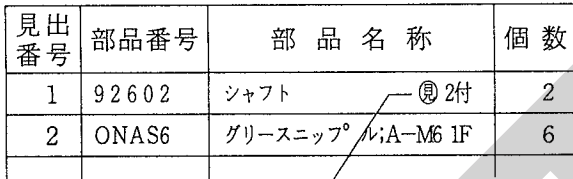 見出番号 部品番号 部品名称 個数
1 92602 シャフト ㊢ 2付 2
2 ONAS6 グリースニップル;A-M6 1F 6